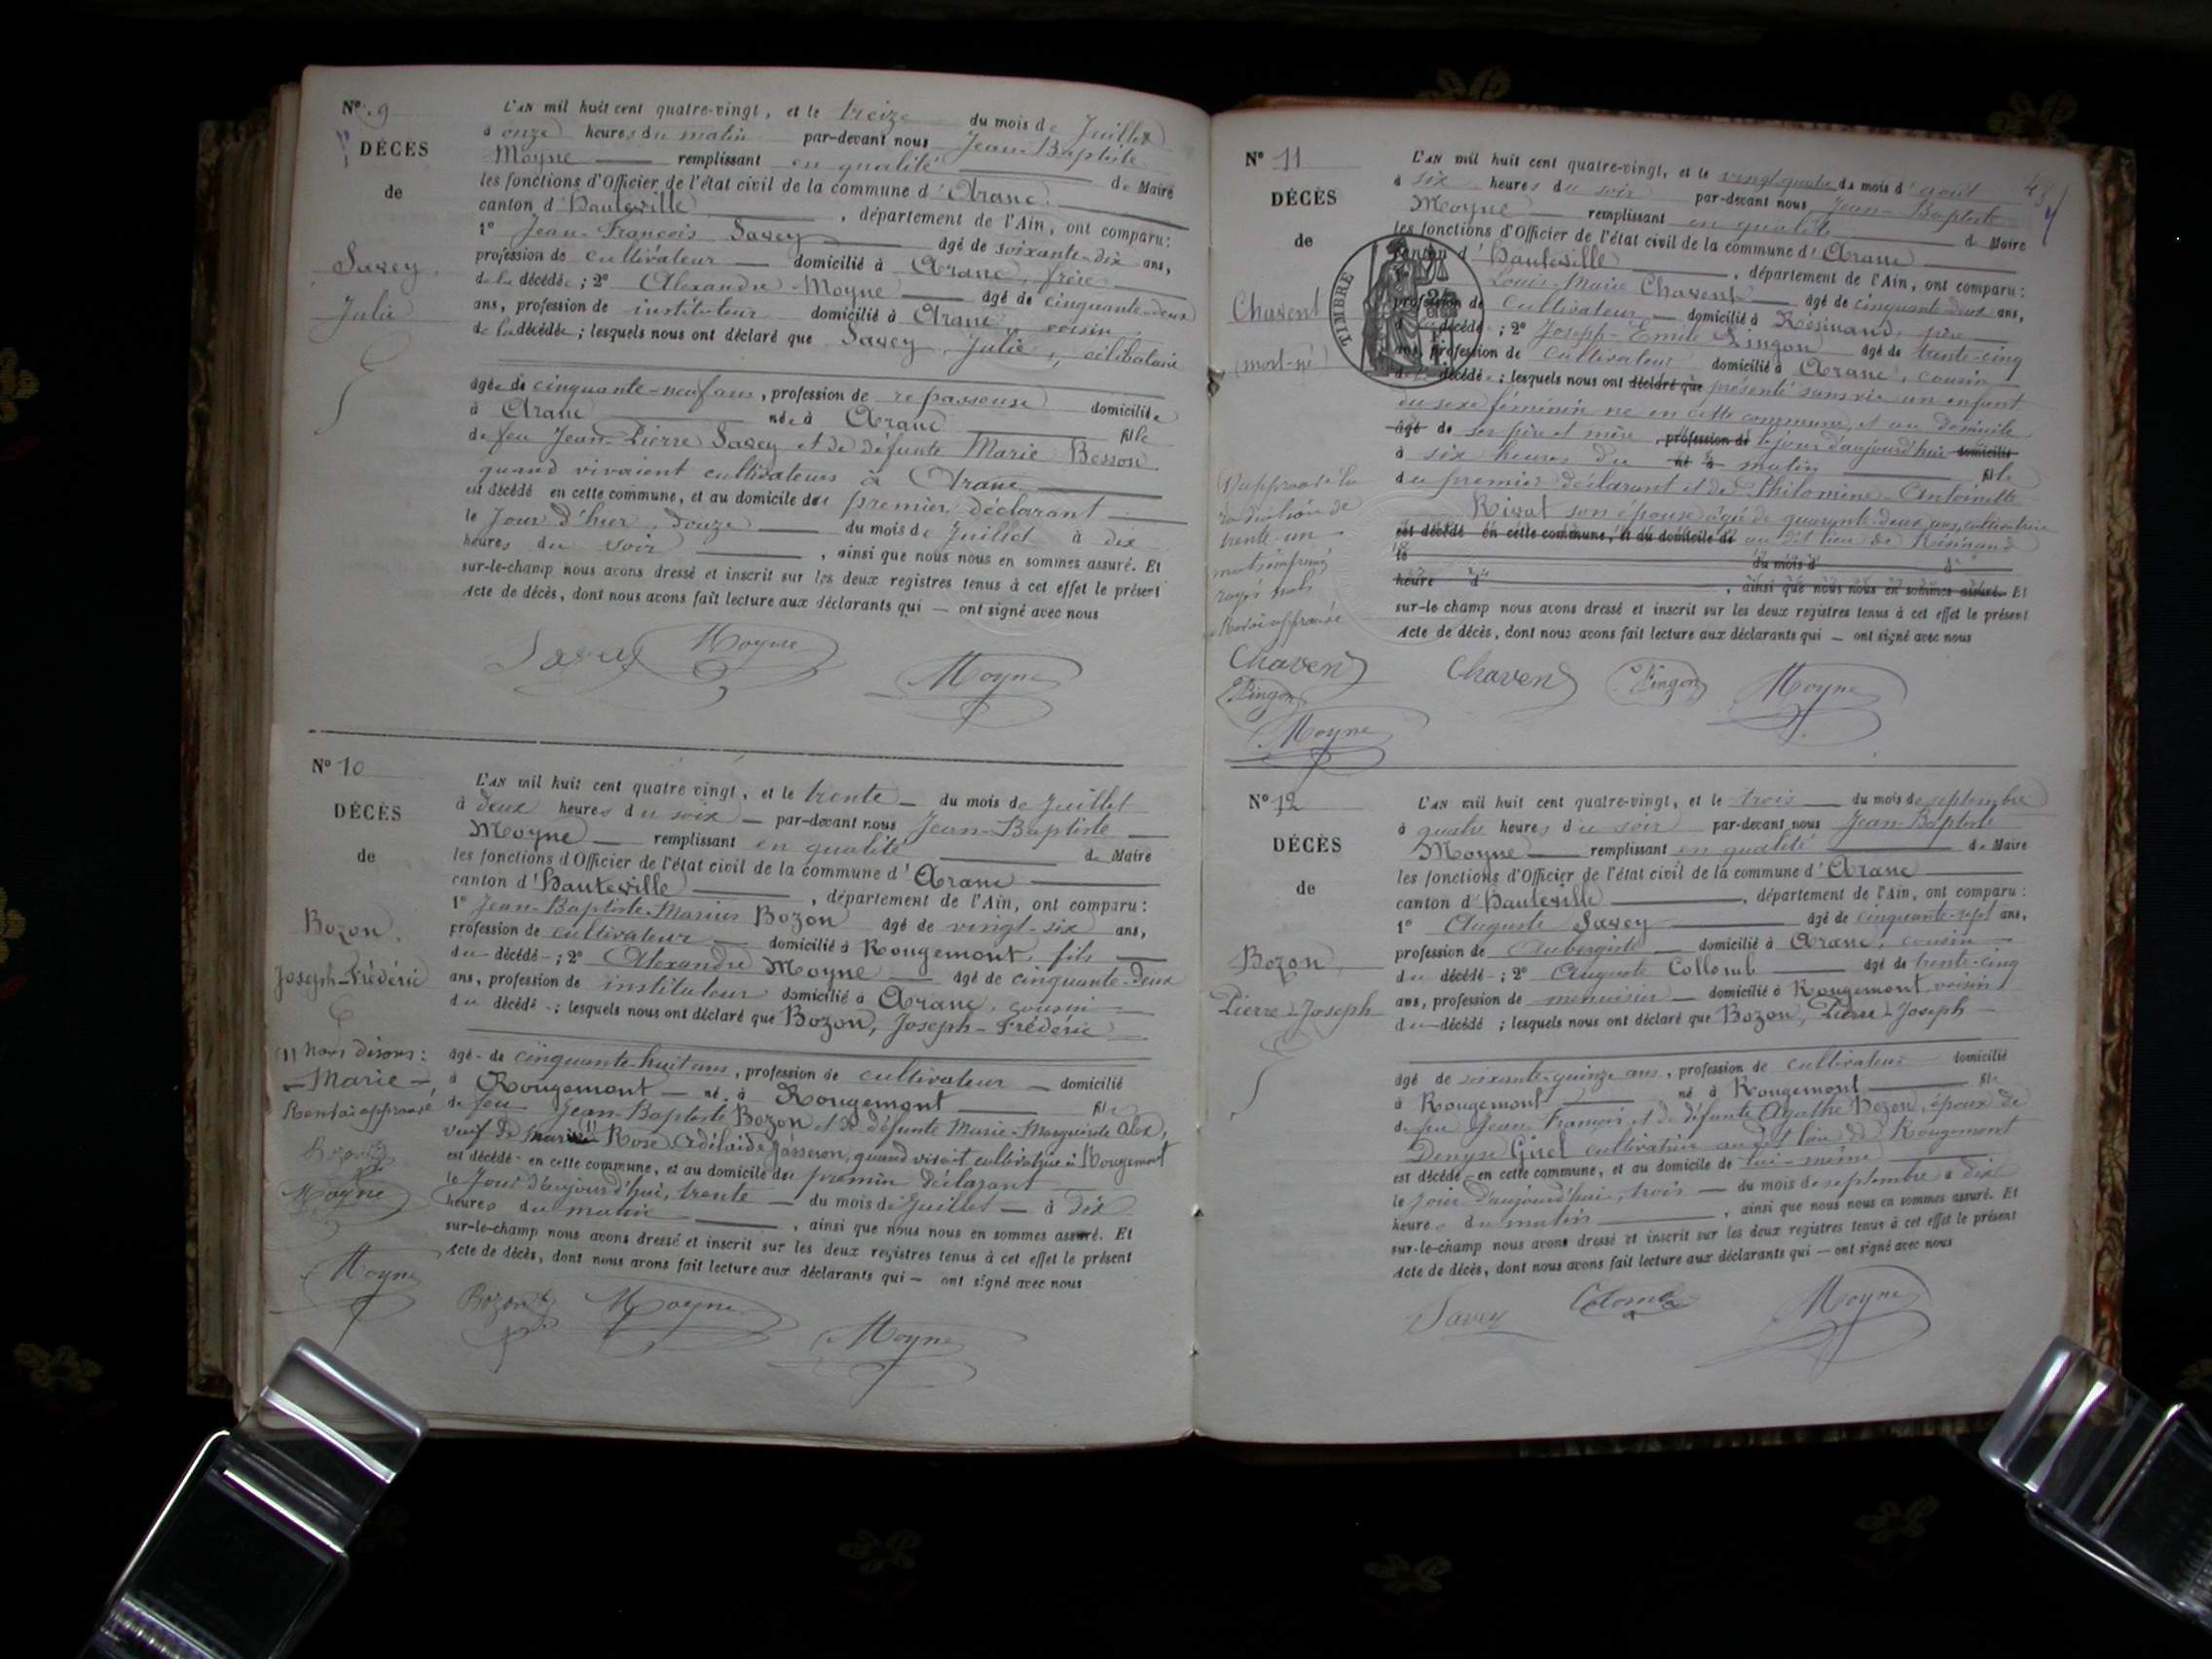 N° 9
DÉCÈS
de
Savey
Julie
L'AN mil huit cent quatre-vingt, et le treize du mois de Juillet
à onze heures du matin par-devant nous Jean-Baptiste
Moyne remplissant en qualité de Maire
les fonctions d'Officier de l'état civil de la commune d'Aranc
canton d'Hauteville, département de l'Ain, ont comparu:
1° Jean-François Savey âgé de soixante-dix ans,
profession de cultivateur domicilié à Aranc, frère
de la décédée; 2° Alexandre Moyne âgé de cinquante-deux
ans, profession de instituteur domicilié à Aranc voisin
de la décédée; lesquels nous ont déclaré que Savey, Julie, célibataire
âgée de cinquante-neuf ans, profession de repasseuse domiciliée
à Aranc née à Aranc fille
de feu Jean-Pierre Savey et de défunte Marie Besson
quand vivaient cultivateurs à Aranc
est décédé en cette commune, et au domicile du premier déclarant
le Jour d'hier, douze du mois de Juillet à dix
heures du soir, ainsi que nous nous en sommes assuré. Et
sur-le-champ nous avons dressé et inscrit sur les deux registres tenus à cet effet le présent
Acte de décès, dont nous avons fait lecture aux déclarants qui — ont signé avec nous
Savey Moyne Moyne
N° 10
DÉCÈS
de
Bozon
Joseph-Frédéric
(1) Nous disons:
- Marie -,
Renvoi approuvé
Bozon
Moyne
Moyne
L'AN mil huit cent quatre vingt, et le trente — du mois de Juillet
à deux heures du soir — par-devant nous Jean-Baptiste
Moyne remplissant en qualité de Maire
les fonctions d'Officier de l'état civil de la commune d'Aranc
canton d'Hauteville, département de l'Ain, ont comparu:
1° Jean-Baptiste-Marius Bozon âgé de vingt-six ans,
profession de cultivateur domicilié à Rougemont, fils
du décédé; 2° Alexandre Moyne âgé de cinquante-deux
ans, profession de instituteur domicilié à Aranc, cousin
du décédé; lesquels nous ont déclaré que Bozon, Joseph-Frédéric
âgé de cinquante-huit ans, profession de cultivateur domicilié
à Rougemont né à Rougemont fils
de feu Jean-Baptiste Bozon et de défunte Marie-Marguerite Alex,
veuf de (1) Rose Adélaïde Jasseron, quand vivait cultivatrice à Rougemont
est décédé en cette commune, et au domicile du premier déclarant
le Jour d'aujourd'hui, trente du mois de Juillet à dix
heures du matin, ainsi que nous nous en sommes assuré. Et
sur-le-champ nous avons dressé et inscrit sur les deux registres tenus à cet effet le présent
Acte de décès, dont nous avons fait lecture aux déclarants qui — ont signé avec nous
Bozon Moyne Moyne
N° 11
DÉCÈS
de
Chavent
(mort-né)
TIMBRE
L'AN mil huit cent quatre-vingt, et le vingt-quatre du mois d'août
à six heures du soir par-devant nous Jean-Baptiste
Moyne remplissant en qualité de Maire
les fonctions d'Officier de l'état civil de la commune d'Aranc
canton d'Hauteville, département de l'Ain, ont comparu:
Louis-Marie Chavent âgé de cinquante-deux ans,
profession de cultivateur domicilié à Résinand, père
décédé; 2° Joseph-Emile Pingon âgé de trente-cinq
ans, profession de cultivateur domicilié à Aranc, cousin
décédé; lesquels nous ont déclaré que présenté sans vie un enfant
du sexe féminin né en cette commune, et au domicile
âgé de ses père et mère, profession de le jour d'aujourd'hui domicilié
à six heures du né à matin fille
du premier déclarant et de Philomène-Antoinette
Rivat son épouse âgée de quarante-deux ans, cultivatrice
est décédé en cette commune, et au domicile de au dit lieu de Résinand
le du mois d à
heure d, ainsi que nous nous en sommes assuré. Et
sur-le champ nous avons dressé et inscrit sur les deux registres tenus à cet effet le présent
Acte de décès, dont nous avons fait lecture aux déclarants qui — ont signé avec nous
trente-un
mots imprimés
rayés nuls
Renvoi approuvé
Chavent
Pingon
Moyne
Chavent Pingon Moyne
N° 12
DÉCÈS
de
Bozon,
Pierre-Joseph
L'AN mil huit cent quatre-vingt, et le trois du mois de septembre
à quatre heures du soir par-devant nous Jean-Baptiste
Moyne remplissant en qualité de Maire
les fonctions d'Officier de l'état civil de la commune d'Aranc
canton d'Hauteville, département de l'Ain, ont comparu:
1° Auguste Savey âgé de cinquante-sept ans,
profession de Aubergiste domicilié à Aranc, cousin
du décédé; 2° Auguste Collomb âgé de trente-cinq
ans, profession de menuisier domicilié à Rougemont, voisin
du décédé; lesquels nous ont déclaré que Bozon, Pierre-Joseph
âgé de soixante-quinze ans, profession de cultivateur domicilié
à Rougemont né à Rougemont fils
de feu Jean-François et de défunte Agathe Bozon, époux de
Denyse Girel cultivatrice au dit lieu de Rougemont
est décédé en cette commune, et au domicile de lui-même
le jour d'aujourd'hui, trois du mois de septembre à dix
heures du matin, ainsi que nous nous en sommes assuré. Et
sur-le-champ nous avons dressé et inscrit sur les deux registres tenus à cet effet le présent
Acte de décès, dont nous avons fait lecture aux déclarants qui — ont signé avec nous
Savey Colomb Moyne